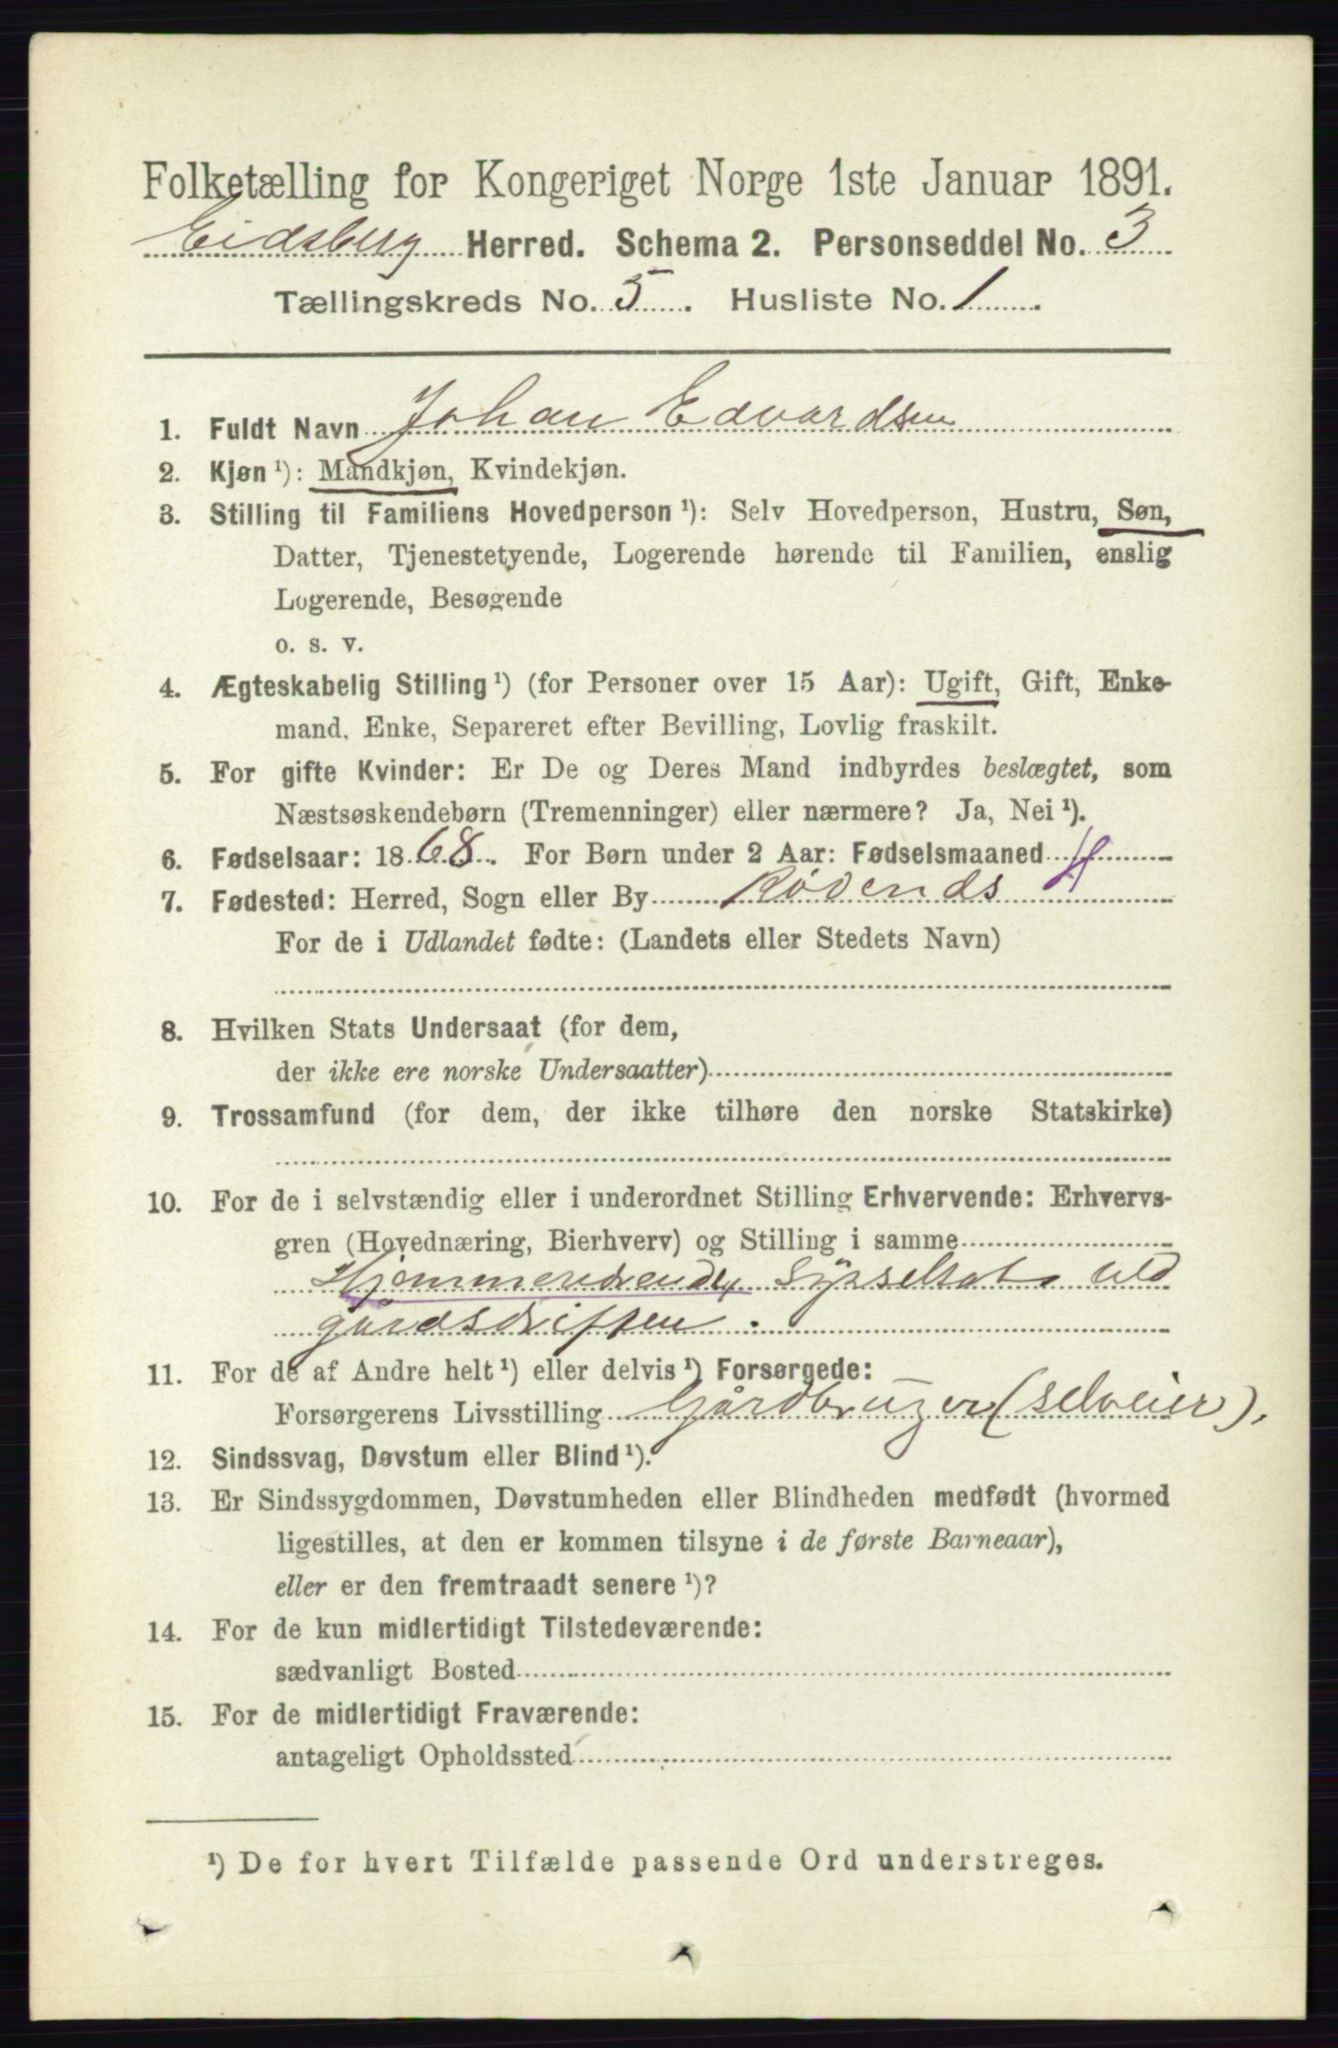 Folketælling for Kongeriget Norge 1ste Januar 1891.
Eidsberg Herred. Schema 2. Personseddel No. 3
Tællingskreds No. 5. Husliste No. 1.
1. Fuldt Navn Johan Edvardsen
2. Kjøn ¹): Mandkjøn, Kvindekjøn.
3. Stilling til Familiens Hovedperson ¹): Selv Hovedperson, Hustru, Søn,
Datter, Tjenestetyende, Logerende hørende til Familien, enslig
Logerende, Besøgende
o. s. v.
4. Ægteskabelig Stilling ¹) (for Personer over 15 Aar): Ugift, Gift, Enke-
mand, Enke, Separeret efter Bevilling, Lovlig fraskilt.
5. For gifte Kvinder: Er De og Deres Mand indbyrdes beslægtet, som
Næstsøskendebørn (Tremenninger) eller nærmere? Ja, Nei ¹).
6. Fødselsaar: 1868. For Børn under 2 Aar: Fødselsmaaned
7. Fødested: Herred, Sogn eller By Rødends H
For de i Udlandet fødte: (Landets eller Stedets Navn)
8. Hvilken Stats Undersaat (for dem,
der ikke ere norske Undersaatter)
9. Trossamfund (for dem, der ikke tilhøre den norske Statskirke)
10. For de i selvstændig eller i underordnet Stilling Erhvervende: Erhvervs-
gren (Hovednæring, Bierhverv) og Stilling i samme
Hjemmeværende, Sysselsat ved
gårdsdriften.
11. For de af Andre helt ¹) eller delvis ¹) Forsørgede:
Forsørgerens Livsstilling Gårdbruger (selveier),
12. Sindssvag, Døvstum eller Blind ¹).
13. Er Sindssygdommen, Døvstumheden eller Blindheden medfødt (hvormed
ligestilles, at den er kommen tilsyne i de første Barneaar),
eller er den fremtraadt senere ¹)?
14. For de kun midlertidigt Tilstedeværende:
sædvanligt Bosted
15. For de midlertidigt Fraværende:
antageligt Opholdssted
¹) De for hvert Tilfælde passende Ord understreges.